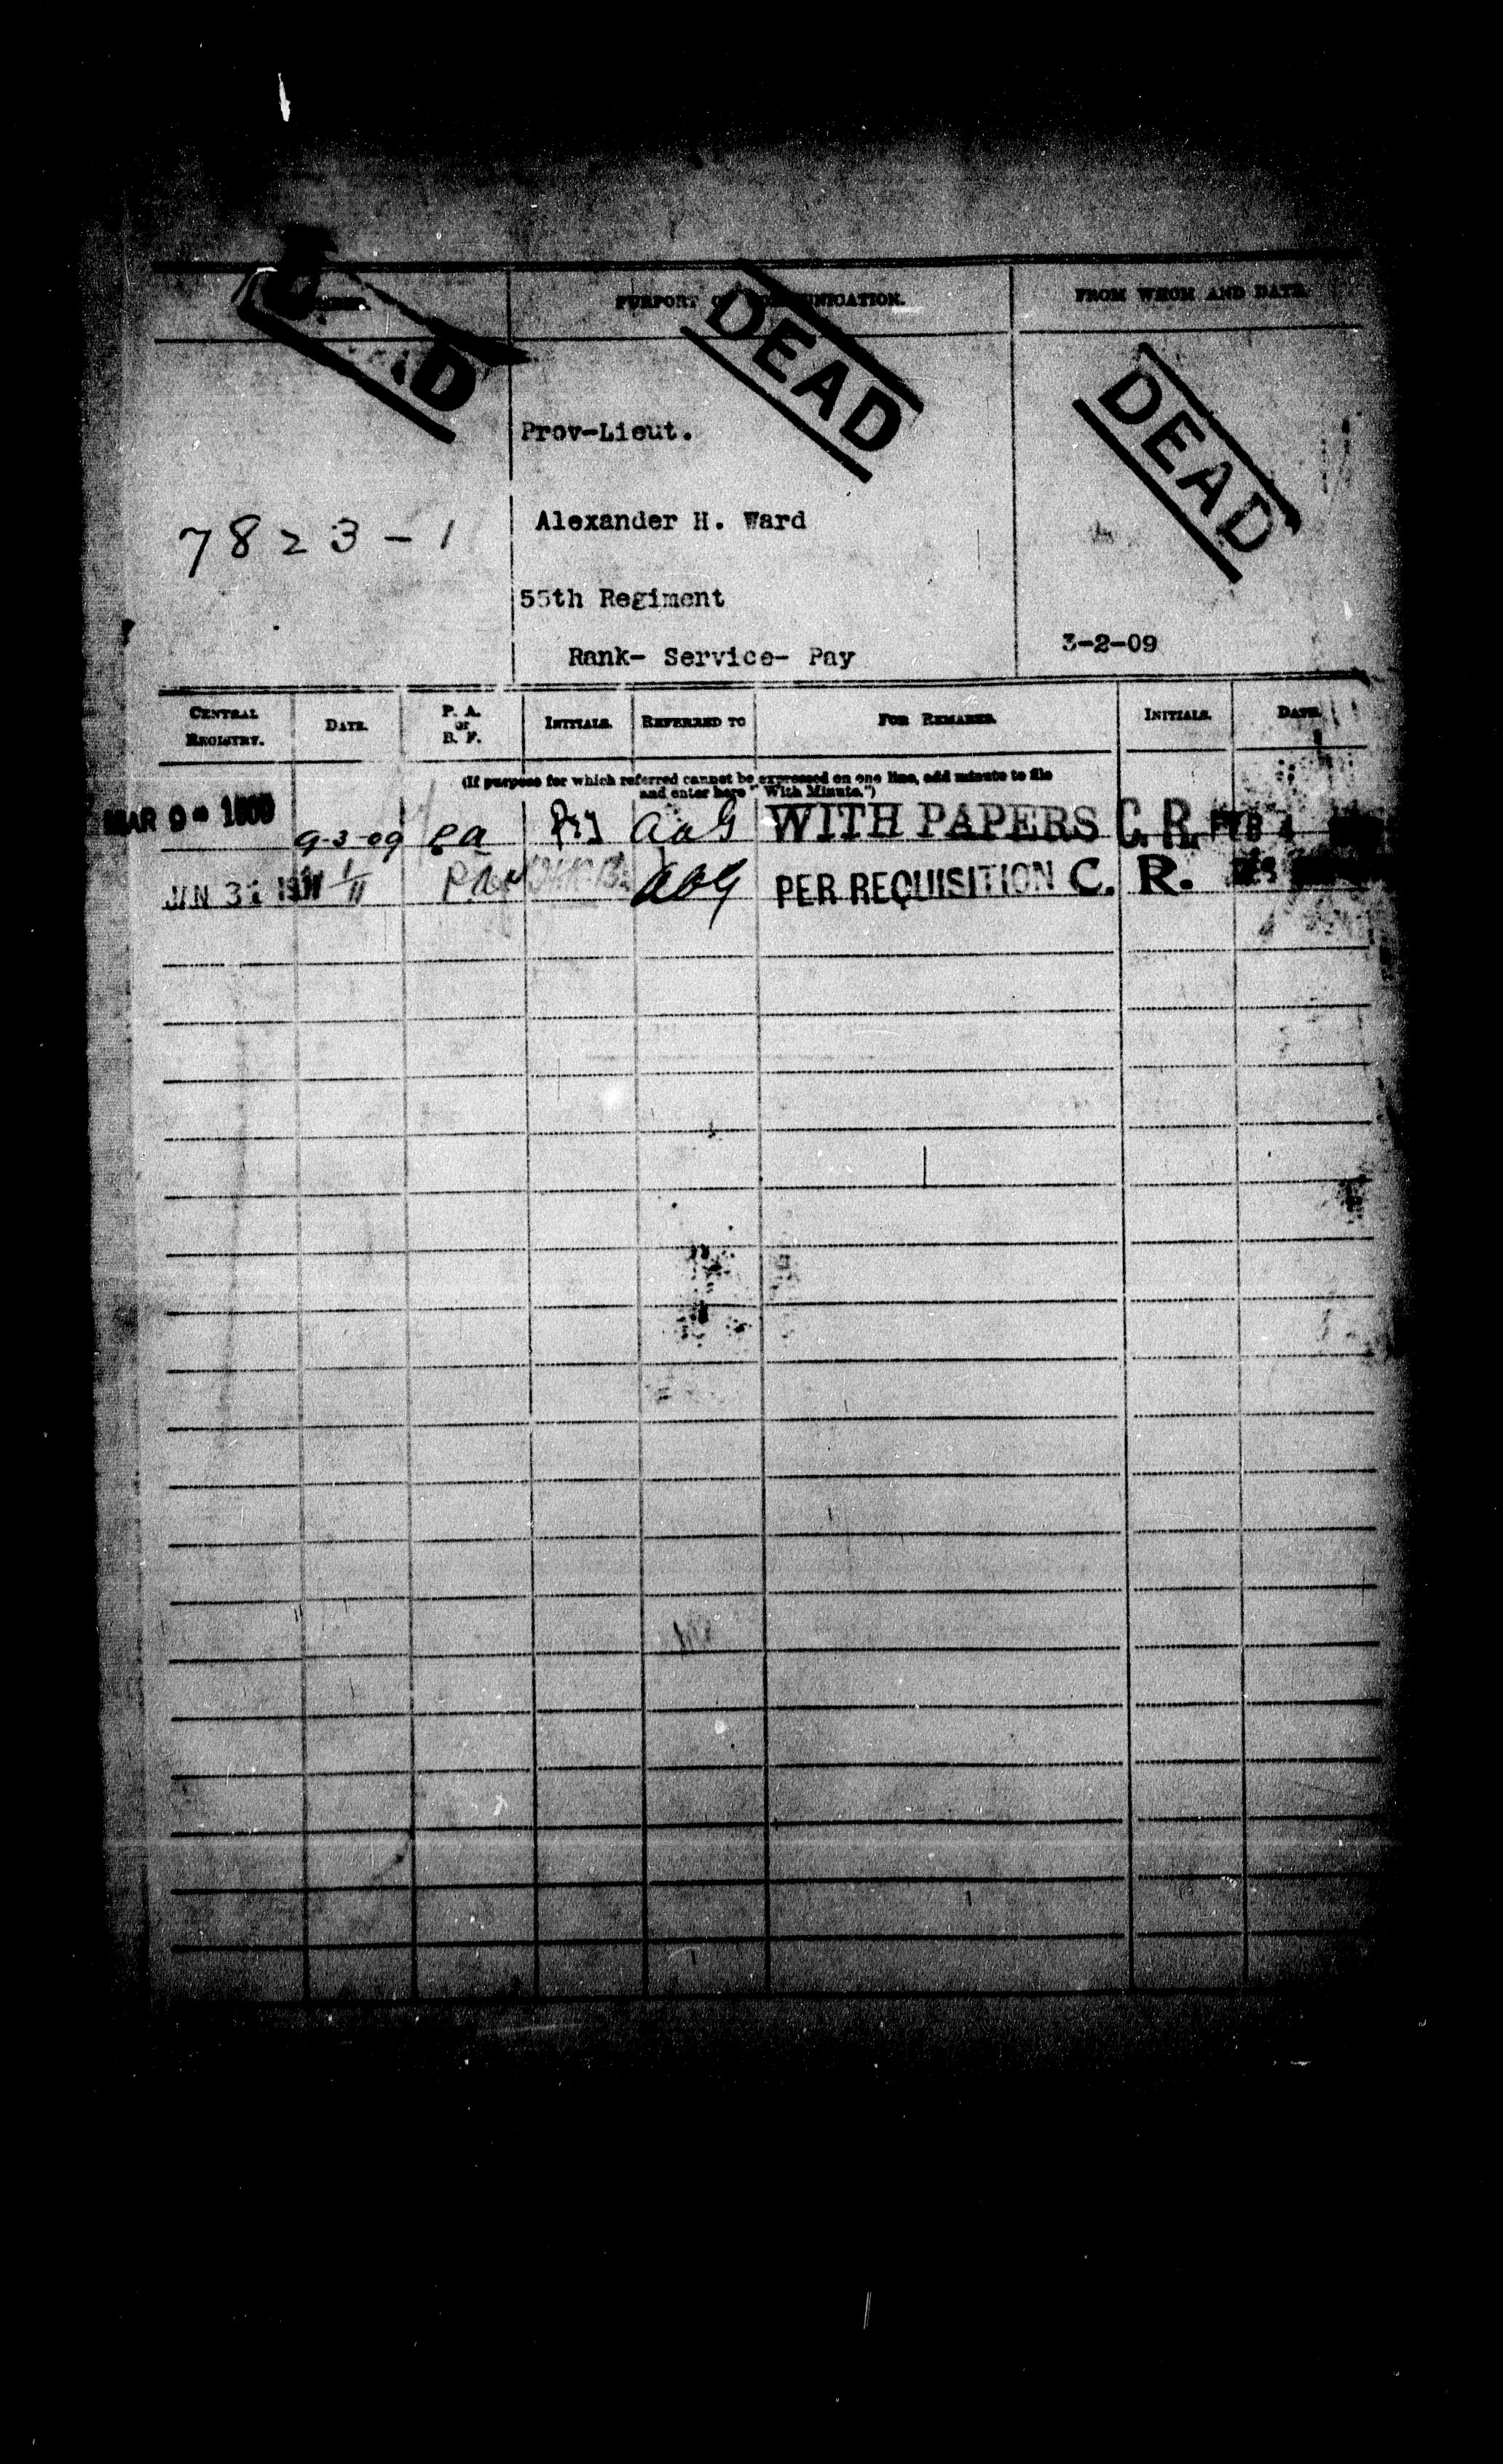 PURPORT OF COMMUNICATION.
FROM WHOM AND DATE.
DEAD
DEAD
Prov-Lieut.
7823-1
Alexander H. Ward
55th Regiment
Rank- Service- Pay
3-2-09
CENTRAL REGISTRY.
DATE.
P. A. or B. F.
INITIALS.
REFERRED TO
FOR REMARKS.
INITIALS.
DATE.
(If purpose for which referred cannot be expressed on one line, add minute to file
and enter here "With Minute.")
MAR 9 - 1909 9-3-09 PA AAG WITH PAPERS C. R. FEB 4
JAN 31 1911 PA AAG PER REQUISITION C. R.